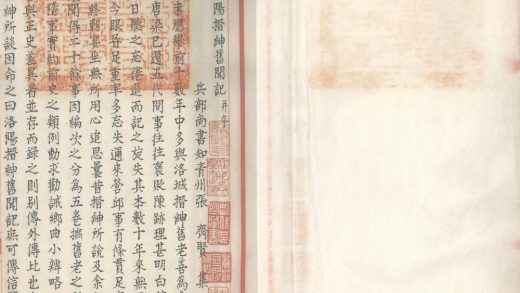 陽搢紳舊聞記 并序
兵部尚書知青州張 齊賢 集
未應舉前十數年中多與洛城搢紳舊老善爲
唐梁已還五代間事往往褒貶陳跡理甚明白
日聽之忘倦退而記之旋失其本數十年來無
今眼昏足重率多忘失邇來營邱事有條貫足
終朝宴坐無所用心追思曩昔搢紳所說及余
聞得二十餘事因編次之分爲五卷摭舊老之
稽事實約前史之類例動求勸誡鄉曲小辨略
與正史差異者並存而錄之則別傳外傳比也
紳所談因命之曰洛陽搢紳舊聞記庶可傳信